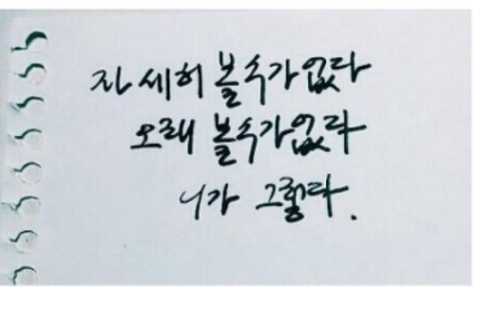 자세히 볼수가없다
오래 볼수가없다
니가 그렇다.